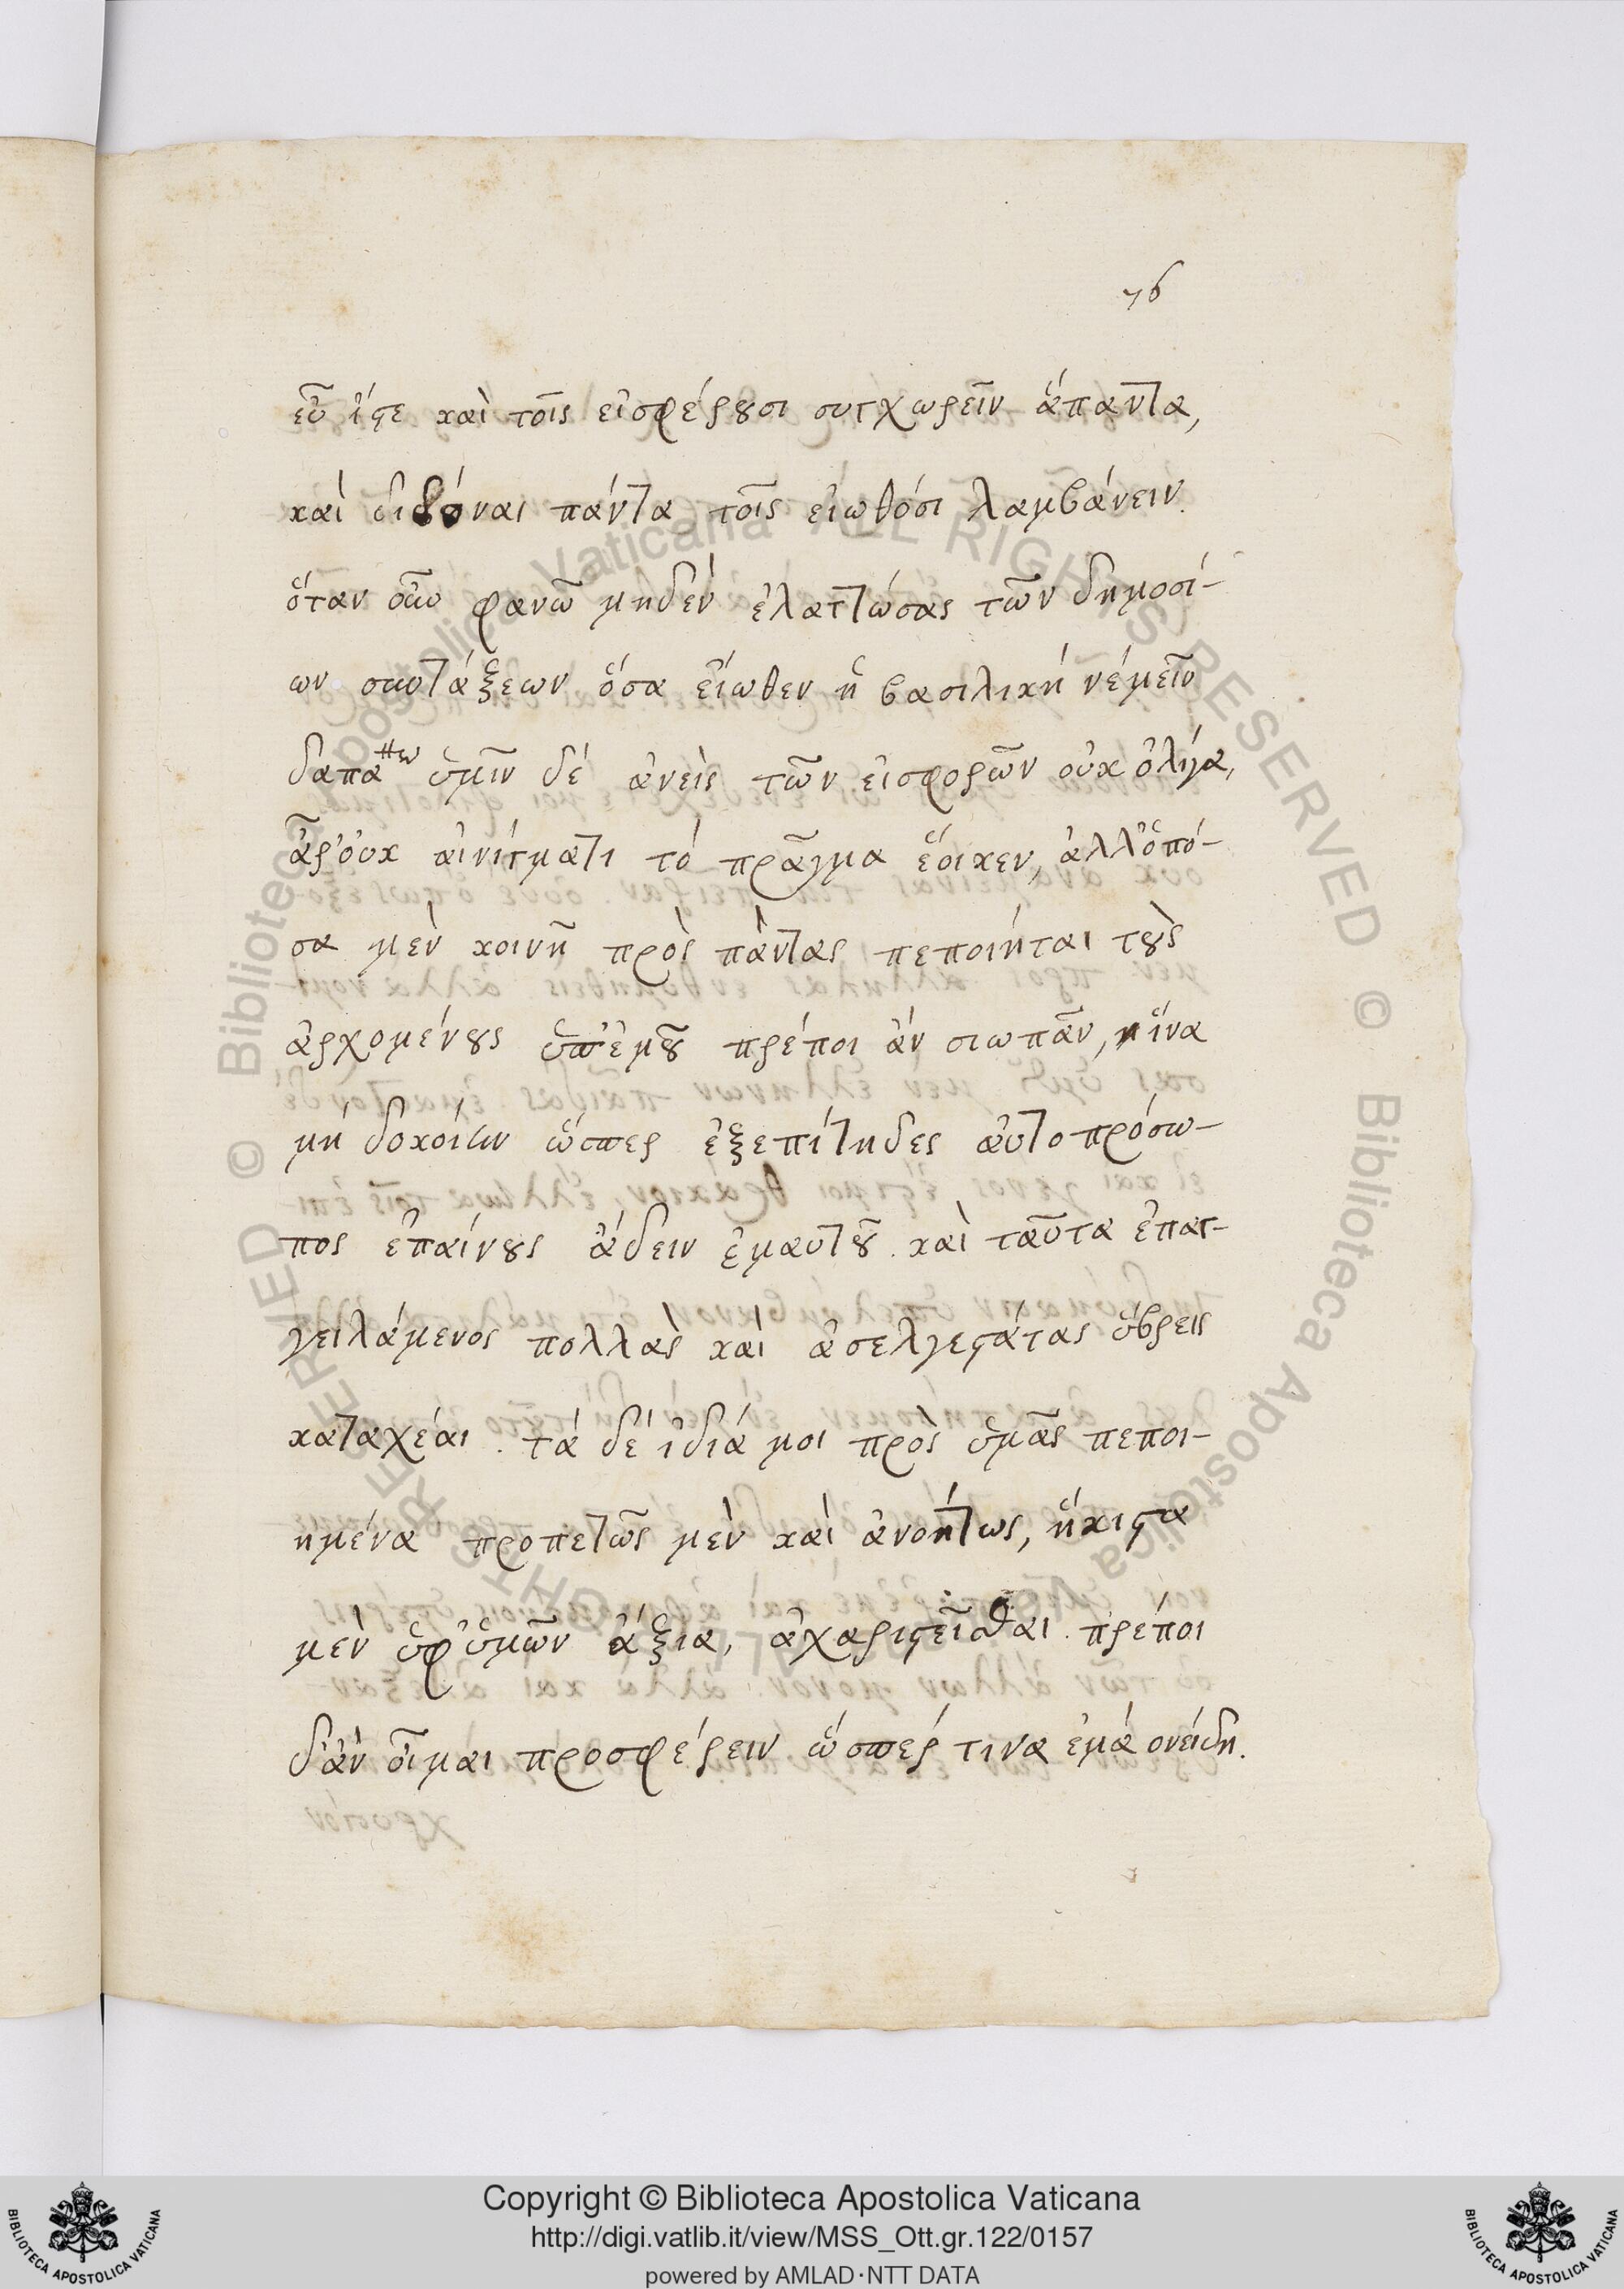 76
εὖ ἴστε καὶ τοῖς εἰσφέρουσι συγχωρεῖν ἅπαντα,
καὶ διδόναι πάντα τοῖς εἰωθόσι λαμβάνειν.
ὅταν οὖν φανῶ μηδὲν ἐλαττώσας τῶν δημοσί-
ων συντάξεων ὅσα εἴωθεν ἡ βασιλικὴ νέμειν
δαπάνην ὑμῖν δὲ ἀνεὶς τῶν εἰσφορῶν οὐκ ὀλίγα,
ἆρ' οὐκ αἰνίγματι τὸ πρᾶγμα ἔοικεν, ἀλλ' ὁπό-
σα μὲν κοινῇ πρὸς πάντας πεποίηται τοὺς
ἀρχομένους ὑπ' ἐμοῦ πρέποι ἂν σιωπᾶν, ἵνα
μὴ δοκοίην ὥσπερ ἐξεπίτηδες αὐτοπρόσω-
πος ἐπαίνους ᾄδειν ἐμαυτοῦ. καὶ ταῦτα ἐπαγ-
γειλάμενος πολλὰς καὶ ἀσελγεστάτας ὕβρεις
καταχέαι. τὰ δὲ ἰδίᾳ μοι πρὸς ὑμᾶς πεποι-
ημένα προπετῶς μὲν καὶ ἀνοήτως, ἥκιστα
μὲν ὑφ' ὑμῶν ἄξια, ἀχαριστεῖσθαι. πρέποι
δ' ἂν οἶμαι προσφέρειν ὥσπέρ τινα ἐμὰ ὀνείδη.
Copyright © Biblioteca Apostolica Vaticana
http://digi.vatlib.it/view/MSS_Ott.gr.122/0157
powered by AMLAD·NTT DATA
BIBLIOTECA APOSTOLICA VATICANA
BIBLIOTECA APOSTOLICA VATICANA